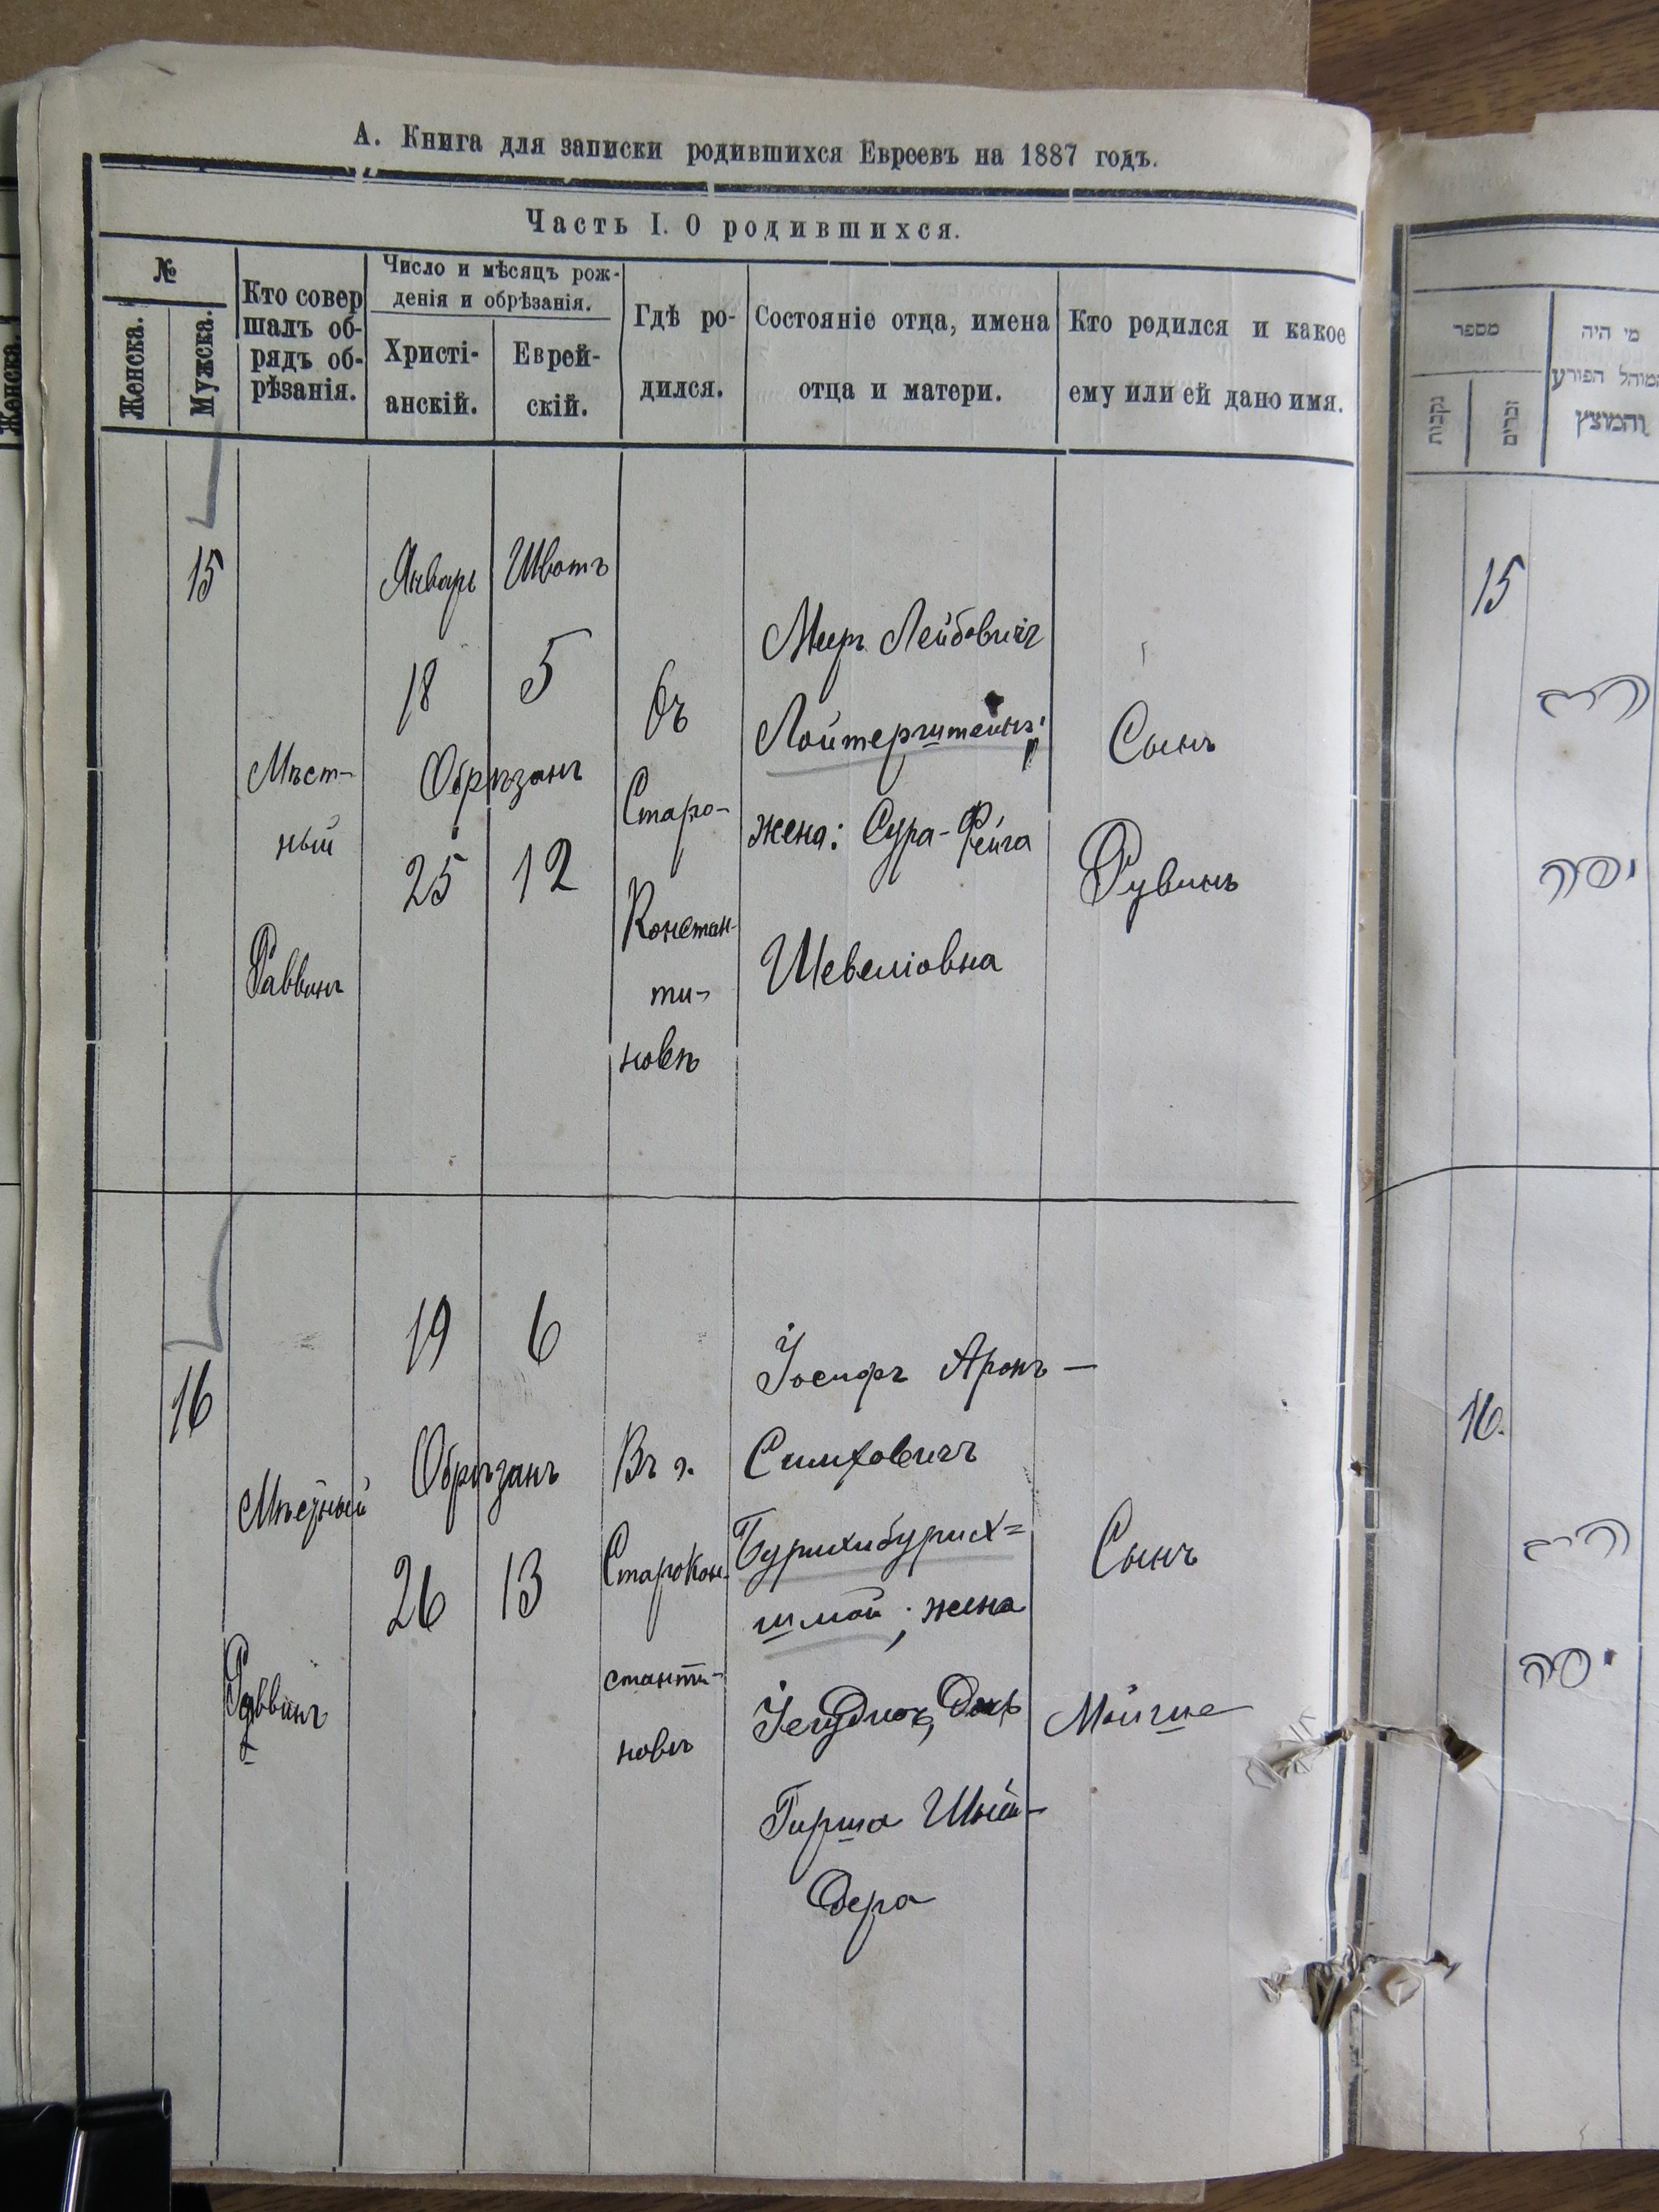 А. Книга для записки родившихся Евреевъ на 1887 годъ.
Часть I. О родившихся.
№
Женска.
Мужска.
Кто совер
шалъ об-
рядъ об-
рѣзанія.
Число и мѣсяцъ рож-
денія и обрѣзанія.
Христі-
анскій.
Еврей-
скій.
Гдѣ ро-
дился.
Состояніе отца, имена
отца и матери.
Кто родился и какое
ему или ей дано имя.
15
Мѣст-
ный
Раввинъ
Январь
18
Шватъ
5
Обрѣзанъ
25
12
Въ
Старо-
Констан-
ти-
новѣ
Меръ Лейбовичъ
Лойтерштейнъ;
жена: Сура-Фейга
Шевеліовна
Сынъ
Рувинъ
16
Раввинъ
19
6
Обрѣзанъ
26
13
Въ г.
Старокон-
станти-
новѣ
Іосифъ Аронъ-
Симховичъ
шмой; жена
Гирша Шней-
дера
Сынъ
Мойше
Женска.
מספר
נקבות
זכרים
מי היה
המוהל הפורע
והמוצץ
15
16.